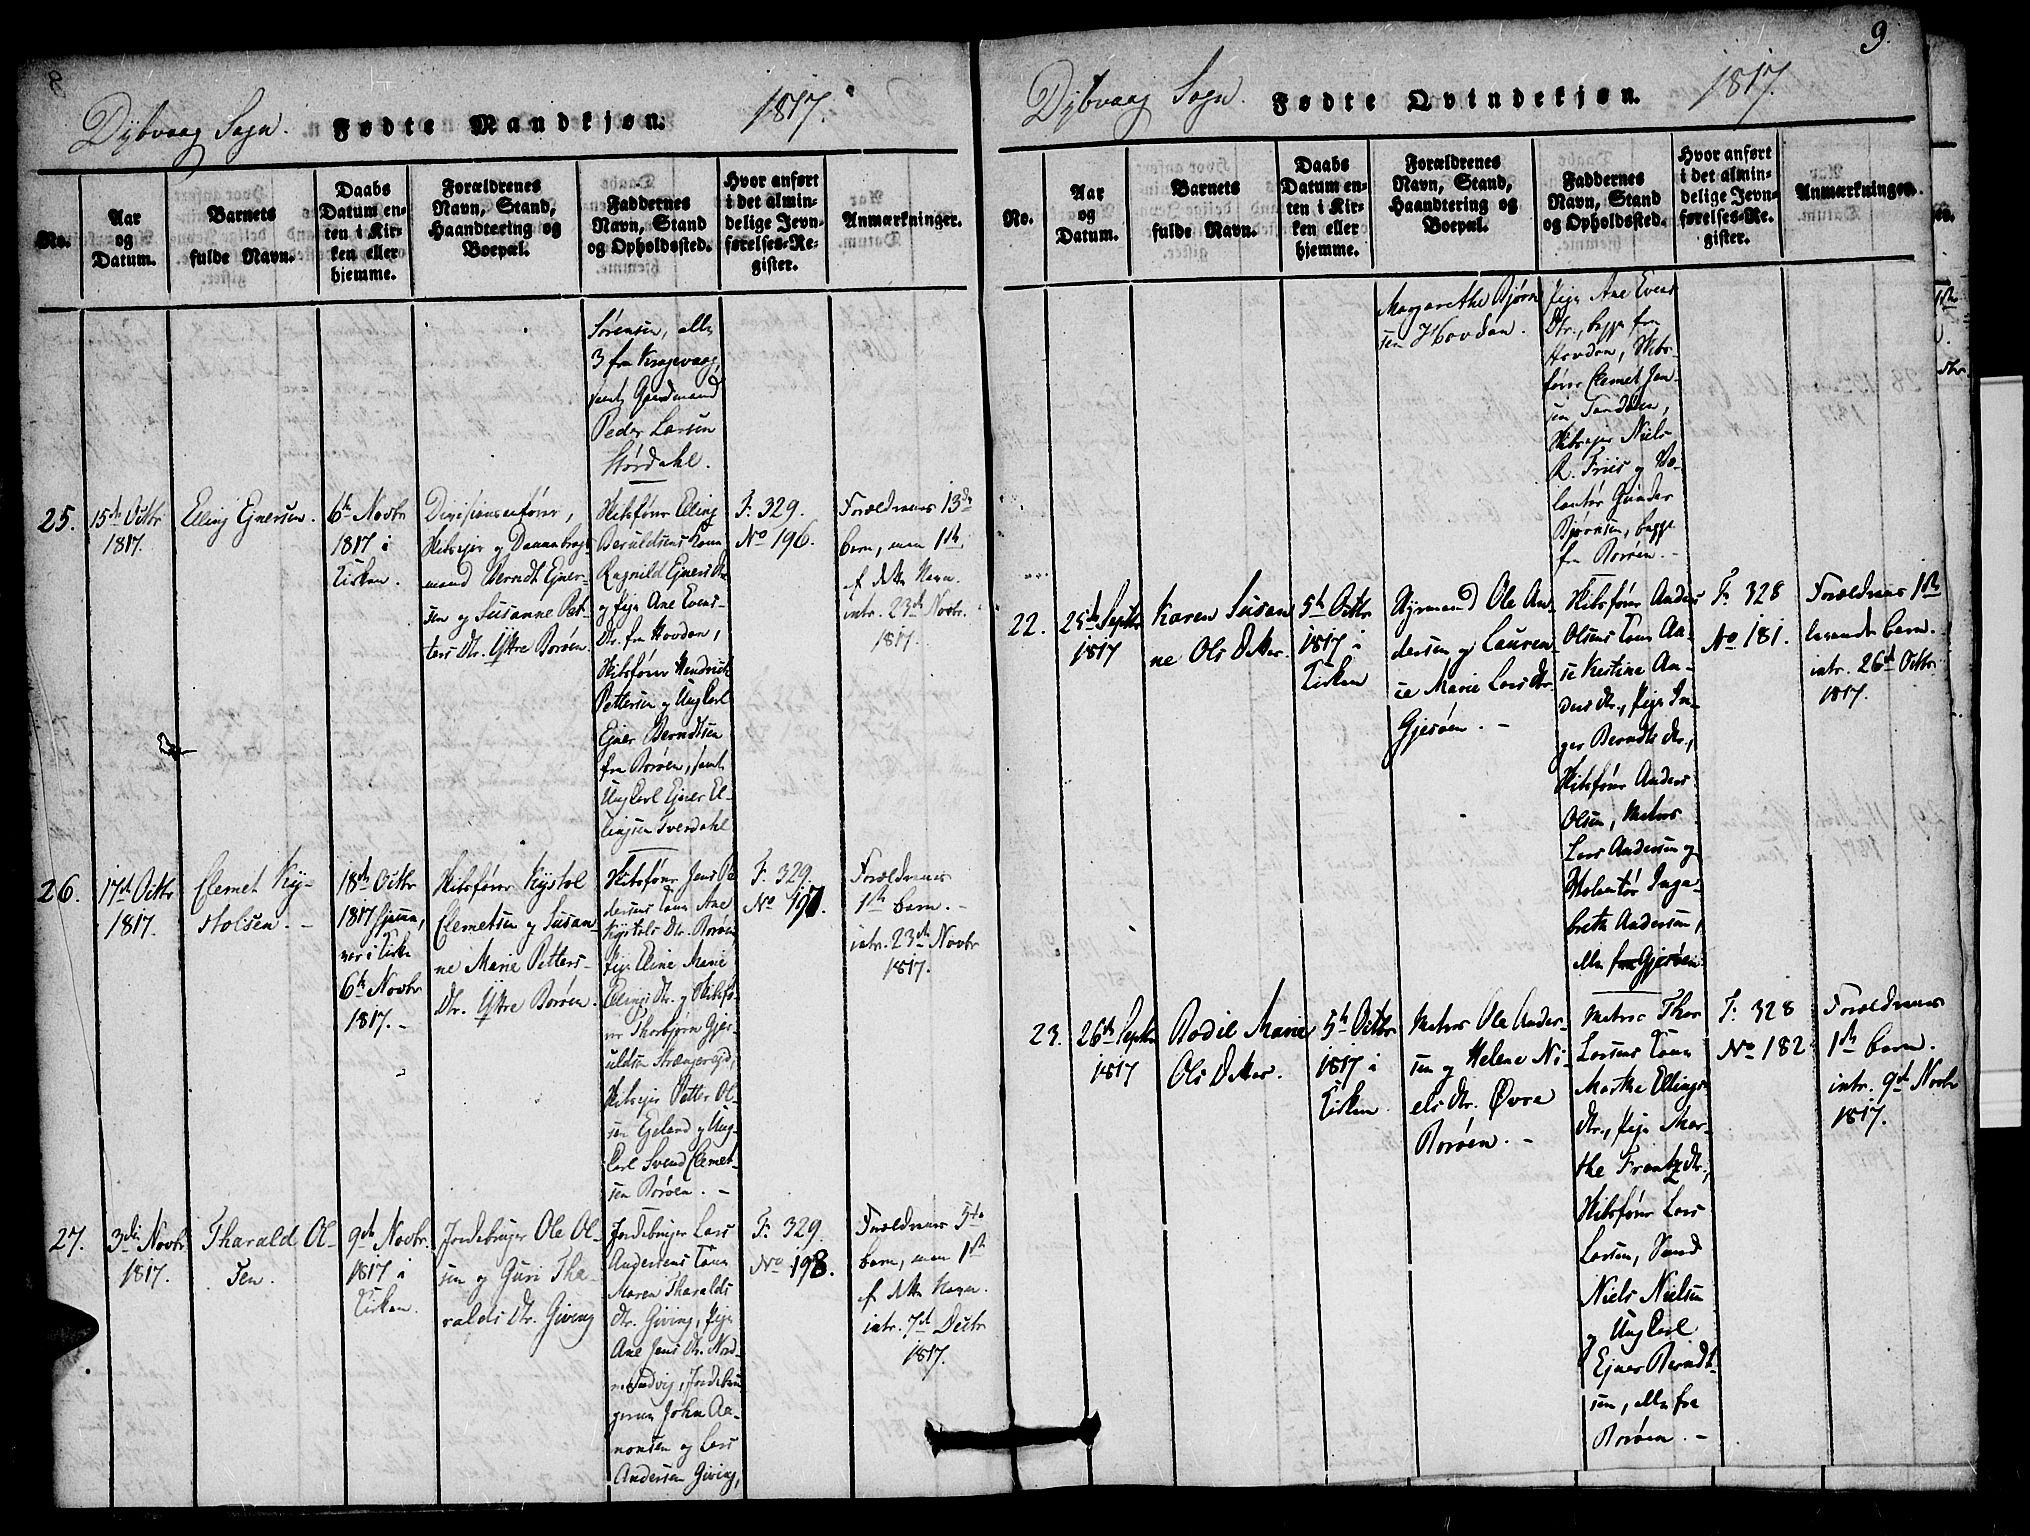 8
Dybvaag Sogn.
Fødte Mandkjøn.
1817.
No.
Aar
og
Datum.
Barnets
fulde Navn.
Daabs
Datum en-
ten i Kir-
ken eller
hjemme.
Forældrenes
Navn, Stand,
Haandtering og
Boepæl.
Faddernes
Navn, Stand
og Opholdssted.
Hvor anført
i det almin-
delige Jevn-
førelses-Re-
gister.
Anmærkninger.
Sørensen, alle
3 fra Krogevaag,
samt Gaardmand
Peder Larsen
Størdahl.
25.
15de Octbr
1817.
Elling Ejnersen.
6te Novbr
1817 i
Kirken.
Divisionsanfører,
Skibsejer og Dannebrogs
mand Berndt Ejner-
sen og Susanne Pet-
ters Dtr. Yttre Borøen
Skibsfører Elling
Beruldsens Kone
Ragnild Ejners Dtr
og Pige Ane Evens-
Dtr. fra Hovdan,
Skibsfører Hendrich
Pettersen og Ungkarl
Ejner Berndtsen
fra Borøen, samt
Ungkarl Ejner El-
lingsen Sverdahl
F. 329.
No 196.
Forældrenes 13de
barn, men 1ste
af dette Navn.
intr. 23de Novbr.
1817.
26.
17de Octbr
1817.
Clemet Ky-
stolsen.
18de Octbr
1817 hjemme,
var i Kirke
6te Novbr
1817.
Skibsfører Kystol
Clemetsen og Susan-
ne Marie Petters-
Dtr. Yttre Borøen.
Skibsfører Jens Pe
dersens Kone Ane
Kystols Dtr. Borøen,
Pige Eline Marie
Ellings Dtr. og Skibsfø-
rer Thorbjørn Gjer
uldsen Strængereid,
Skibsejer Petter Ol-
sen Ejeland og Ung-
karl Svend Clemet-
sen Borøen.
F. 329.
No 197.
Forældrenes
1ste barn.
intr. 23de Novbr
1817.
27.
3die Novbr
1817.
Tharald Ol-
sen.
9de Novbr.
1817 i
Kirken.
Jordebruger Ole Ol-
sen og Guri Tha-
ralds Dtr. Giving
Jordebruger Lars
Andersens Kone
Maren Tharalds
Dtr. Giving, Pige
Ane Jens Dtr. Nord-
re Sandvig, Jordebru
gerne John Aa-
nonsen og Lars
Andersen Giving,
F. 329.
No 198.
Forældrenes 5te
barn, men 1ste
af dette Navn.
intr. 7de Decbr
1817.
9.
Dybvaag Sogn.
Fødte Qvindekjøn.
1817.
No.
Aar
og
Datum.
Barnets
fulde Navn.
Daabs
Datum en-
ten i Kir-
ken eller
hjemme.
Forældrenes
Navn, Stand,
Haandtering og
Boepæl.
Faddernes
Navn, Stand
og Opholdssted.
Hvor anført
i det almin-
delige Jevn-
førelses-Re-
gister.
Anmærkninger.
Margarethe Bjørn
sen Hovdan.
Pige Ane Evens
Dtr., begge fra
Hovdan, Skibs-
fører Clemet Jen-
sen Sandøen,
Skibsejer Niels
R. Friis og Vo-
lontør Gunder
Bjørnsen, begge
fra Borøen.
22.
25de Septbr
1817
Karen Susan
ne Ols Datter.
5te Octbr
1817 i
Kirken
Styrmand Ole An-
dersen og Lauren-
se Marie Lars Dtr.
Gjesøen.
Skibsfører Anders
Olsens Kone Aa-
se Kirstine An-
ders Dtr., Pige In-
ger Berndts Dtr,
Skibsfører Anders
Olsen, Matros
Lars Andersen og
Volontør Inge-
breth Andersen,
alle fra Gjesøen
F. 328
No 181.
Forældrenes 1ste
levende barn.
intr. 26de Octbr
1817.
23.
26de Septbr
1817
Bodil Marie
Ols Datter.
5te Octbr
1817 i
Kirken
Matros Ole Ander-
sen og Helene Ni-
els Dtr. Øvre
Borøen.
Matros Thor
Larsens Kone
Marthe Ellings
Dtr., Pige Mar-
the Frantz Dtr.,
Skibsfører Lars
Larsen,
Niels Nielsen
og Ungkarl
Ejner Berndt-
sen, alle fra
Borøen.
F. 328
No 182
Forældrenes
1ste barn.
intr. 9de Novbr
1817.